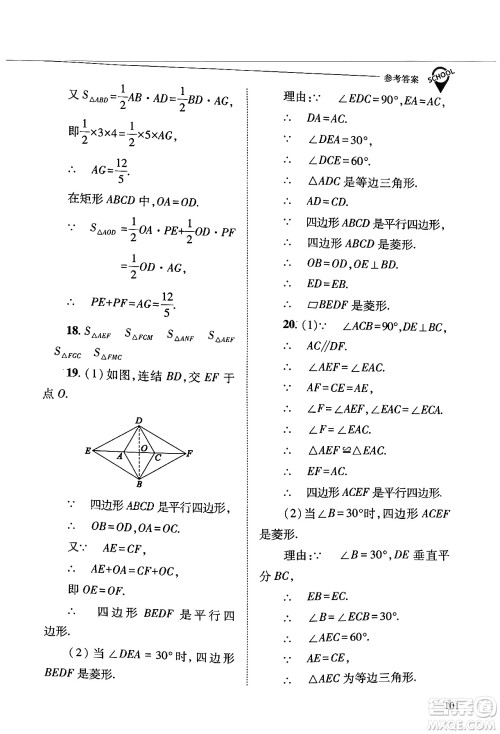 参考答案
SCHOOL
又 S△ABD=1/2AB·AD=1/2BD·AG,
即1/2×3×4=1/2×5×AG,
∴ AG=12/5.
在矩形 ABCD 中,OA=OD.
∵ S△AOD=1/2OA·PE+1/2OD·PF
=1/2OD·AG,
∴ PE+PF=AG=12/5.
18. S△AEF S△FCM S△ANF S△AEF
S△FGC S△FMC
19. (1)如图,连结 BD,交 EF 于
点 O.
D
E A O C F
B
∵ 四边形 ABCD 是平行四边形,
∴ OB=OD,OA=OC.
又∵ AE=CF,
∴ AE+OA=CF+OC,
即 OE=OF.
∴ 四边形 BEDF 是平行四
边形.
(2) 当∠DEA=30°时,四边形
BEDF 是菱形.
理由:∵ ∠EDC=90°,EA=AC,
∴ DA=AC.
∵ ∠DEA=30°,
∴ ∠DCE=60°.
∴ △ADC 是等边三角形.
∴ AD=CD.
∵ 四边形 ABCD 是平行四边形,
∴ 四边形 ABCD 是菱形.
∴ OB=OD,OE⊥BD.
∴ ED=EB.
∴ ▱BEDF 是菱形.
20. (1)∵ ∠ACB=90°,DE⊥BC,
∴ AC∥DF.
∴ ∠AEF=∠EAC.
∵ AF=CE=AE,
∴ ∠F=∠AEF=∠EAC=∠ECA.
∴ △AEF≌△EAC.
∴ EF=AC.
∴ 四边形 ACEF 是平行四边形.
(2) 当∠B=30°时,四边形 ACEF
是菱形.
理由:∵ ∠B=30°,DE 垂直平
分 BC,
∴ EB=EC.
∴ ∠B=∠ECB=30°.
∴ ∠AEC=60°.
∵ AE=CE,
∴ △AEC 为等边三角形.
101